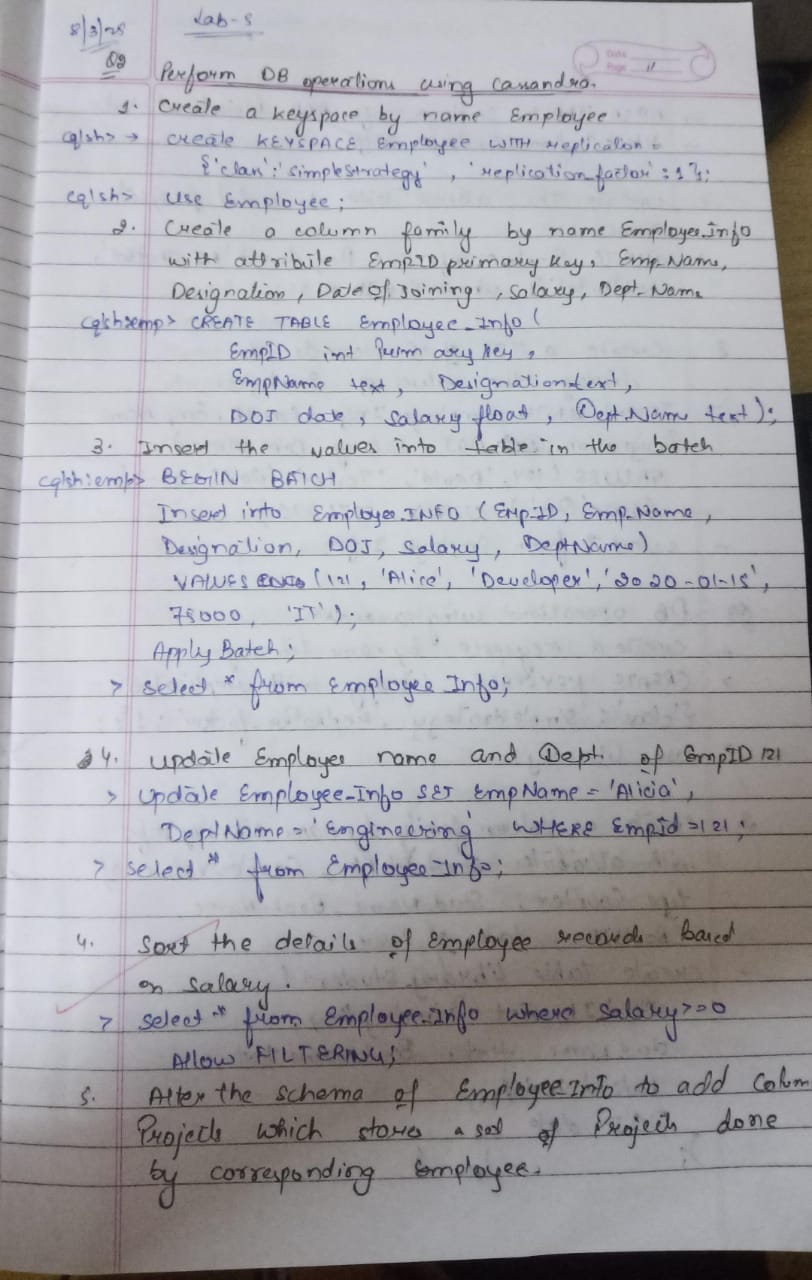 8/3/25
Lab-5
Q2
Date
Page 11
Perform DB operations using Cassandra.
1. Create a keyspace by name Employee
cqlsh> → create KEYSPACE Employee WITH replication =
{'class':'simplestrategy', 'replication_factor':1};
cqlsh> Use Employee;
2. Create a column family by name Employee_info
with attribute EmpID primary key, Emp_Name,
Designation, Date Of Joining, Salary, Dept_Name
cqlsh:emp> CREATE TABLE Employee_Info (
EmpID int Primary key,
EmpName text, Designation text,
DOJ date, salary float, Dept_Name text);
3. Insert the values into table in the batch
cqlsh:emp> BEGIN BATCH
Insert into Employee_INFO (Emp_ID, Emp_Name,
Designation, DOJ, Salary, DeptName)
VALUES (121, 'Alice', 'Developer', '2020-01-15',
75000, 'IT');
Apply Batch;
> select * from Employee_Info;
4. Update Employee name and Dept. of EmpID 121
> Update Employee_Info SET EmpName = 'Alicia',
DeptName = 'Engineering' WHERE Empid = 121;
> select * from Employee_Info;
4. Sort the details of Employee records based
on salary.
> select * from Employee_info where salary >= 0
Allow FILTERING;
5. Alter the schema of Employee_Info to add Colum
Projects which stores a set of Projects done
by corresponding Employee.